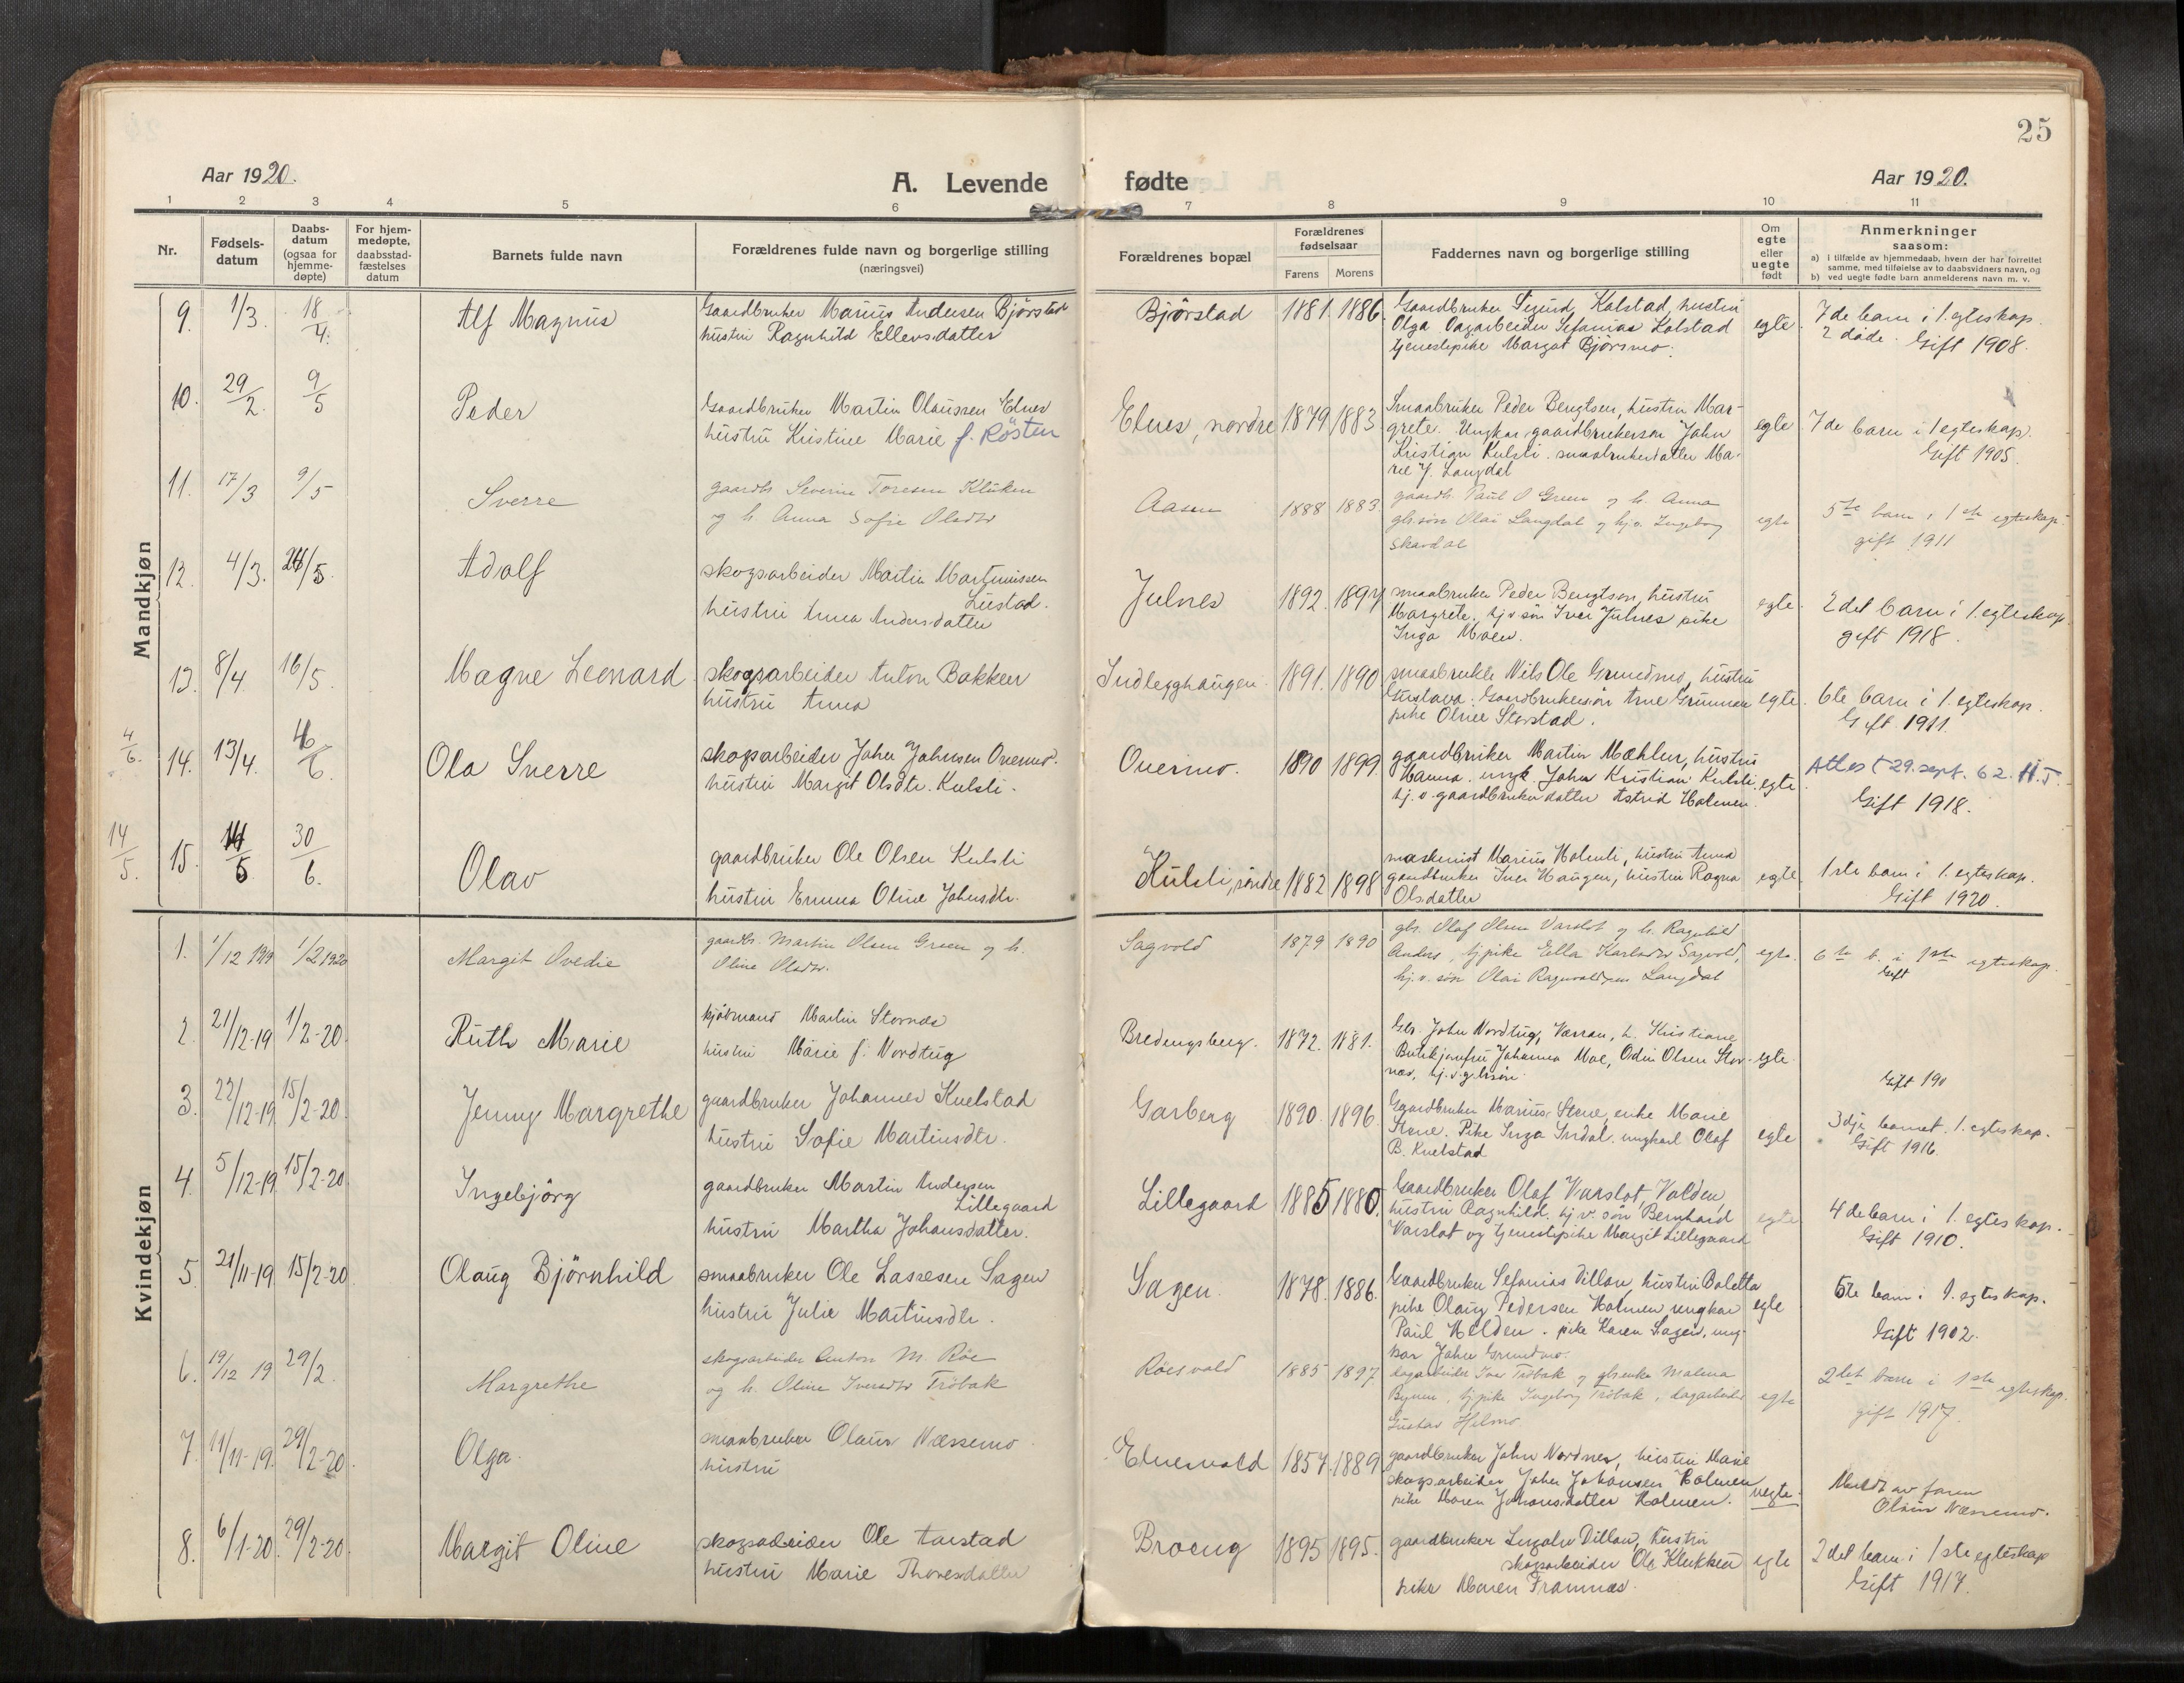 25
Aar 1920.
A. Levende fødte
Aar 1920.
1 2 3 4 5 6 7 8 9 10 11
Nr.
Fødsels-
datum
Daabs-
datum
(ogsaa for
hjemme-
døpte)
For hjem-
medøpte,
daabsstad-
fæstelses
datum
Barnets fulde navn
Forældrenes fulde navn og borgerlige stilling
(næringsvei)
Forældrenes bopæl
Forældrenes
fødselsaar
Farens Morens
Faddernes navn og borgerlige stilling
Om
egte
eller
uegte
født
Anmerkninger
saasom:
a) i tilfælde av hjemmedaab, hvem der har forrettet
samme, med tilføielse av to daabsvidners navn, og
b) ved uegte fødte barn anmelderens navn m. v.
Mandkjøn
9. 1/3. 18/4. Alf Magnus
Gaardbruker Marius Andersen Bjørstad
hustru Ragnhild Ellevsdatter
Bjørstad 1881. 1886.
Gaardbruker Sigurd Kolstad, hustru
Olga Dagarbeider Sefanias Kolstad
tjenestepike Margot Bjørsmo.
egte.
7de barn i 1. egteskap.
2 døde. Gift 1908.
10. 29/2. 9/5 Peder
Gaardbruker Martin Olaussen Elnes
hustru Kristine Marie f. Røsten
Elnes, nordre 1879 1883.
Smaabruker Peder Bengtsen, hustru Mar-
grete. Ungkar gaardbrukersøn John
Kristian Kulsli. smaabrukerdatter Ma-
rie J. Langdal
egte
7de barn i 1 egteskap.
Gift 1905.
11. 17/3 9/5 Sverre
gaardb. Severin Toresen Kluken
og h. Anna Sofie Olsdtr
Aasen 1888 1883.
gaardb. Paul O Green og h. Anna
gb.søn Olai Langdal og hj.v. Ingeborg
Skardal
egte
5te barn i 1ste egteskap.
gift 1911
12. 4/3. 24/5. Adolf
skogsarbeider Martin Martinussen
Lustad.
hustru Anna Andersdatter
Julnes 1892. 1894
smaabruker Peder Bengtsen, hustru
Margrete, hj v søn Iver Julnes pike
Inga Moen.
egte.
2det barn i 1. egteskap.
gift 1918.
13. 8/4 16/5. Magne Leonard
skogsarbeider Anton Bakken
hustru Anna
Indlegghaugen. 1891. 1890
smaabruker Nils Ole Grundmo, hustru
Gustava. Gaardbrukersøn Arne
pike Oline Storstad.
egte.
6te barn i 1. egteskap.
Gift 1911.
4/6. 14. 13/4. 4/6. Ola Sverre
skogsarbeider John Johnsen Overmo.
hustru Margit Olsdtr. Kulsli.
Overmo. 1890 1899.
gaardbruker Martin Mæhlur, hustru
Hanna. ungk. John Kristian Kulsli.
hj. v. gaardbruker datter Astrid Holmen.
egte.
Attest 29. sept. 62. H.T.
Gift 1918.
14/5. 15. 14/5 30/6. Olav
gaardbruker Ole Olsen Kulsli
hustru Emma Oline Johnsdtr.
Kulsli, søndre 1882 1898
maskinist Marius Holmli, hustru Anna
gaardbruker Iver Haugen, hustru Ragna
Olsdatter
egte
1ste barn i 1. egteskap.
Gift 1920.
Kvindekjøn
1. 1/12 1919 1/2 1920 Margit Ovedie
gaardbr. Martin Olsen Green og h.
Oline Olsdtr.
Sagvold 1879 1890
gbr. Olaf Olsen Varslot og h. Ragnhild
Anders, tj pike Ella Karlsdtr Sagvold,
hj.v. søn Olai Ragnvaldsen Langdal
egte.
6te b. i 1ste egteskap.
Gift
2. 21/12-19 1/2-20 Ruth Marie
kjøbmand Martin Stornæs
hustru Marie f. Nordtug
Bredengsberg. 1872. 1881.
Gbr. John Nordtug, Værran, h. Kristiane
Butikjomfru Johanna Moe, Odin Olsen Stor-
næs, hj. v. gbrsøn.
egte
Gift 190
3. 22/12-19 15/2-20. Jenny Margrethe
gaardbruker Johannes Kvelstad
hustru Sofie Martinsdtr.
Garberg 1890. 1896.
Gaardbruker Marius Stene, enke Marie
Stene. Pike Inga Indal. ungkarl Olaf
B. Kvelstad
egte
3dje barnet. 1. egteskap.
Gift 1916.
4. 5/12-19 15/2-20 Ingebjørg
gaardbruker Martin Andersen
Lillegaard
hustru Martha Johansdatter.
Lillegaard 1885 1880.
Gaardbruker Olaf Varslot, Volden,
hustru Ragnhild. hj.v. søn Bernhard
Varslot og tjenestepike Margit Lillegaard
egte
4de barn i 1. egteskap.
Gift 1910.
5. 21/11-19 15/2-20. Olaug Bjørnhild
smaabruker Ole Lassesen Sagen
hustru Julie Martinsdtr.
Sagen. 1878. 1886.
Gaardbruker Sefanias Dillan, hustru Boletta
pike Olaug Pedersen Holmen ungkar
Paul Helden. pike Karen Sagen, ung-
kar John Grundmo.
egte
5te barn i 1. egteskap.
Gift 1902.
6. 19/12 19 29/2. Margrethe
skogsarbeider Anton M. Røe
og h. Oline Iversdtr Trøbak
Roesvold 1885 1897
dagarbeider Iver Trøbak og gbrenke Malena
Bynen, tj pike Ingeborg Trøbak, dagarbeider
Gustav Helmo
egte
2det barn i 1ste egteskap.
gift 1917.
7. 11/11-19. 29/2-20 Olga.
smaabruker Olaus Næssemo
hustru
Elnesvald 1857. 1889
gaardbruker John Nordnes, hustru Marie
skogsarbeider John Johansen Holmen
pike Maren Johansdatter Holmen.
uegte.
Meldt av faren
Olaus Næssemo.
8. 6/1-20. 29/2-20. Margit Oline
skogsarbeider Ole Aarstad
hustru Marie Thoresdatter
Broeng 1895 1895.
gaardbruker Ingolv Dillan, hustru
skogsarbeider Ole Klukken
pike Maren Framnæs.
egte
2det barn i 1ste egteskap
Gift 1917.